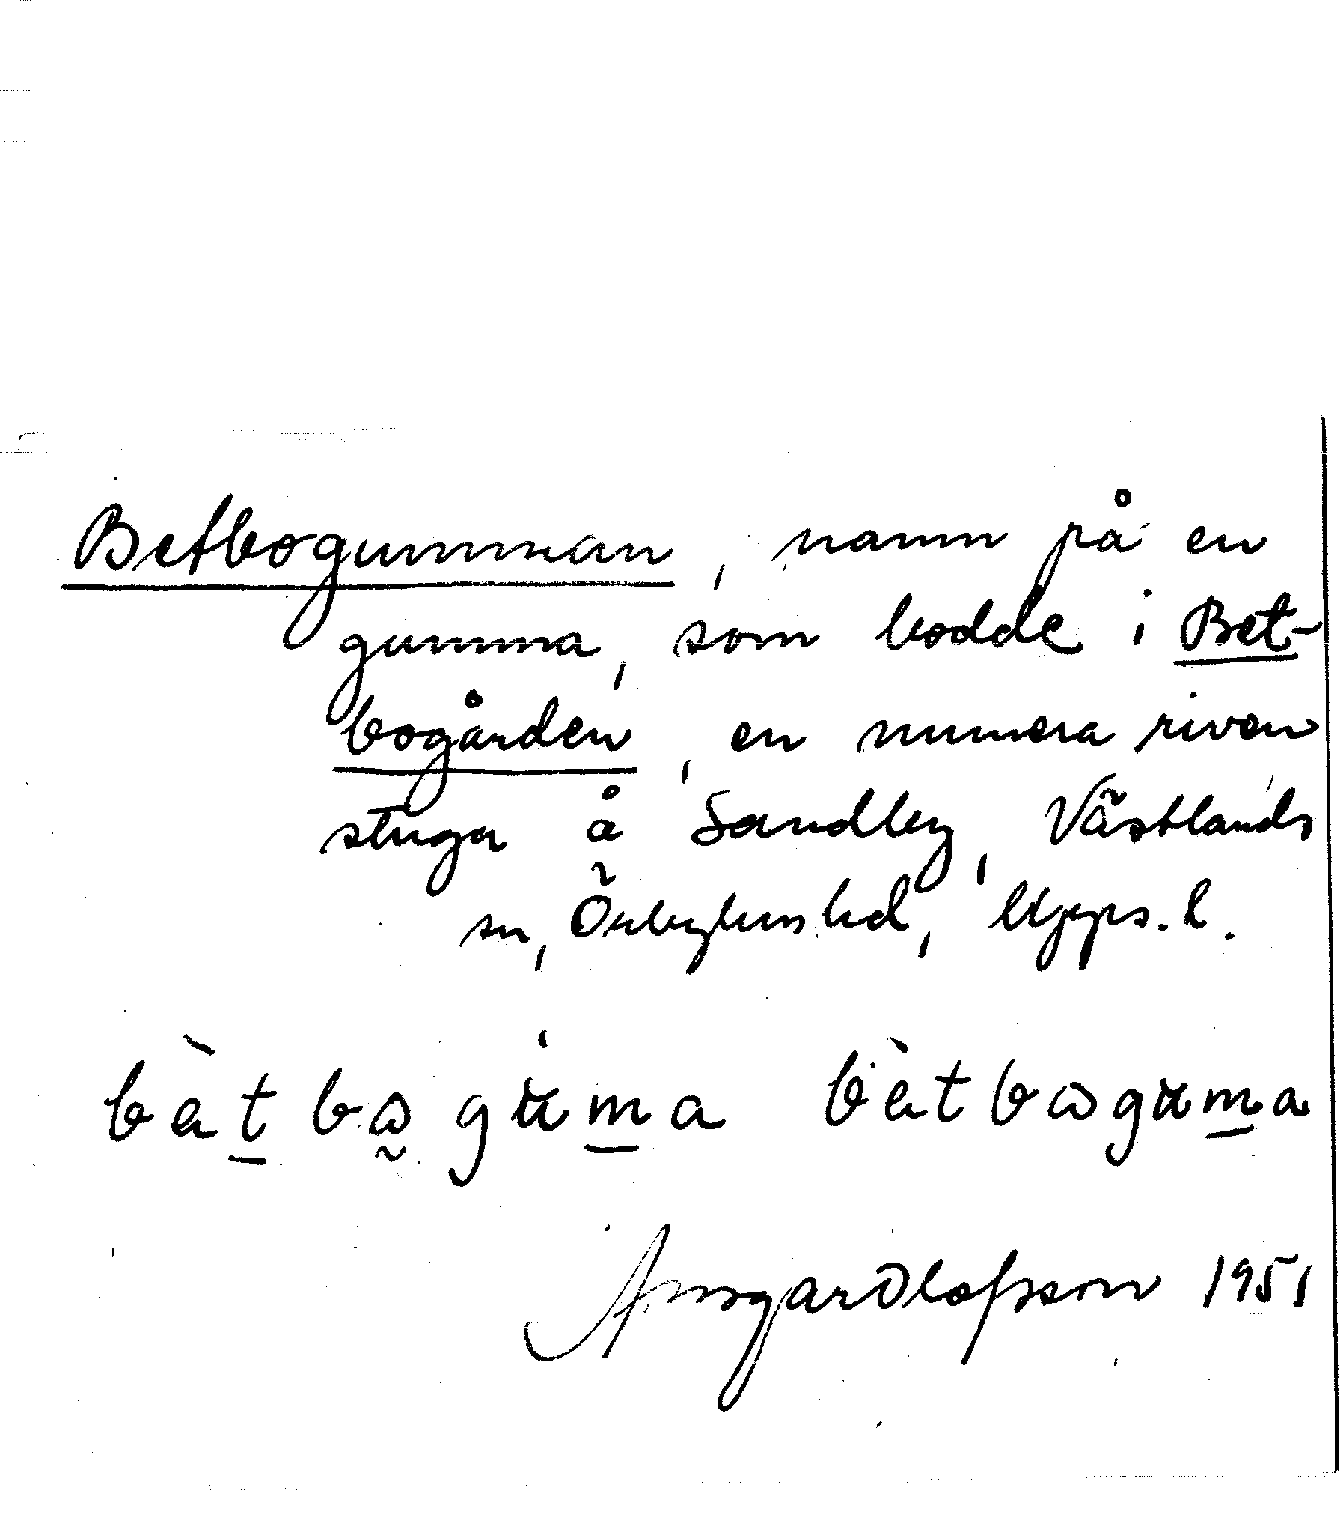 Betbogumman, namn på en
gumma, som bodde i Bet-
bogården, en numera riven
stuga å Sandby, Västlands
sn, Örbyhus hd, Upps. l.
bètbɷgu̇ma bètbɷguma
Ansgar Olofsson 1951